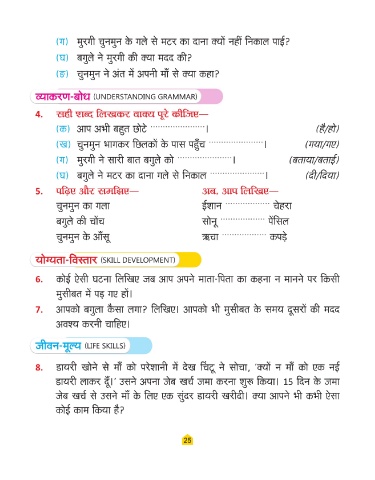 (ग) मुरगी चुनमुन के गले से मटर का दाना क्यों नहीं निकाल पाई?
(घ) बगुले ने मुरगी की क्या मदद की?
(ङ) चुनमुन ने अंत में अपनी माँ से क्या कहा?
व्याकरण-बोध (UNDERSTANDING GRAMMAR)
4. सही शब्द लिखकर वाक्य पूरे कीजिए—
(क) आप अभी बहुत छोटे ......................। (है/हो)
(ख) चुनमुन भागकर छिलकों के पास पहुँच ......................। (गया/गए)
(ग) मुरगी ने सारी बात बगुले को ......................। (बताया/बताई)
(घ) बगुले ने मटर का दाना गले से निकाल ......................। (दी/दिया)
5. पढ़िए और समझिए— अब, आप लिखिए—
चुनमुन का गला ईशान .................. चेहरा
बगुले की चोंच सोनू .................. पेंसिल
चुनमुन के आँसू ऋचा .................. कपड़े
योग्यता-विस्तार (SKILL DEVELOPMENT)
6. कोई ऐसी घटना लिखिए जब आप अपने माता-पिता का कहना न मानने पर किसी
मुसीबत में पड़ गए हों।
7. आपको बगुला कैसा लगा? लिखिए। आपको भी मुसीबत के समय दूसरों की मदद
अवश्य करनी चाहिए।
जीवन-मूल्य (LIFE SKILLS)
8. डायरी खोने से माँ को परेशानी में देख चिंटू ने सोचा, 'क्यों न माँ को एक नई
डायरी लाकर दूँ।' उसने अपना जेब खर्च जमा करना शुरू किया। 15 दिन के जमा
जेब खर्च से उसने माँ के लिए एक सुंदर डायरी खरीदी। क्या आपने भी कभी ऐसा
कोई काम किया है?
25